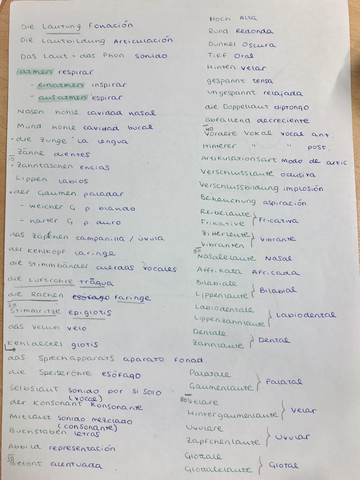 Die Lautung Fonación
Die Lautbildung Articulación
Das Laut - das Phon sonido
aatmen respirar
- einatmen inspirar
- ausatmen espirar
Nasen höhle cavidad nasal
Mund höhle cavidad bocal
- die Zunge la lengua
- Zänne dientes
- Zahntaschen encías
Lippen labios
- der Gaumen paladar
- weicher G. p blando
- harter G. p duro
das Zäpfchen campanilla / úvula
der Kehlkopf laringe
die Stimmbänder cuerdas vocales
die Luftröhre tráquea
die Rachen esófago faringe
Stimmritze epiglotis
das Velum velo
Kehldeckel glotis
das Sprechapparats aparato fonad
die Speiseröhre esófago
Selbstlaut sonido por si solo
(vocal)
der Konsonant konsonante
Mitlaut sonido mezclado
(consonante)
Buchstaben letras
Abbild representación
Betont acentuada
Hoch Alta
Rund Redonda
Dunkel Oscura
Tief Oral
Hinten velar
gespannt tensa
ungespannt relajada
die Doppellaut diptongo
abfallend decreciente
40
Vordere Vokal vocal ant.
Hinterer " " post
Artikulationsart Modo de artic
Verschlusslaute oclusita
Verschlussbildung implosión
Behauchung aspiración
Reibelaute
Frikative } Fricativa
Zitterlaute
Vibranten } Vibrante
Nasallaute Nasal
Affrikata Africada
Bilabiale
Lippenlaute } Bilabial
Labiodentale
Lippenzahnlaute } Labiodental
Dentale
Zahnlaute } Dental
Palatale
Gaumenlaute } Palatal
Velare
Hintergaumenlaute } Velar
Uvulare
Zäpfchenlaute } Uvular
Glottale
Glottallaute } Glotal